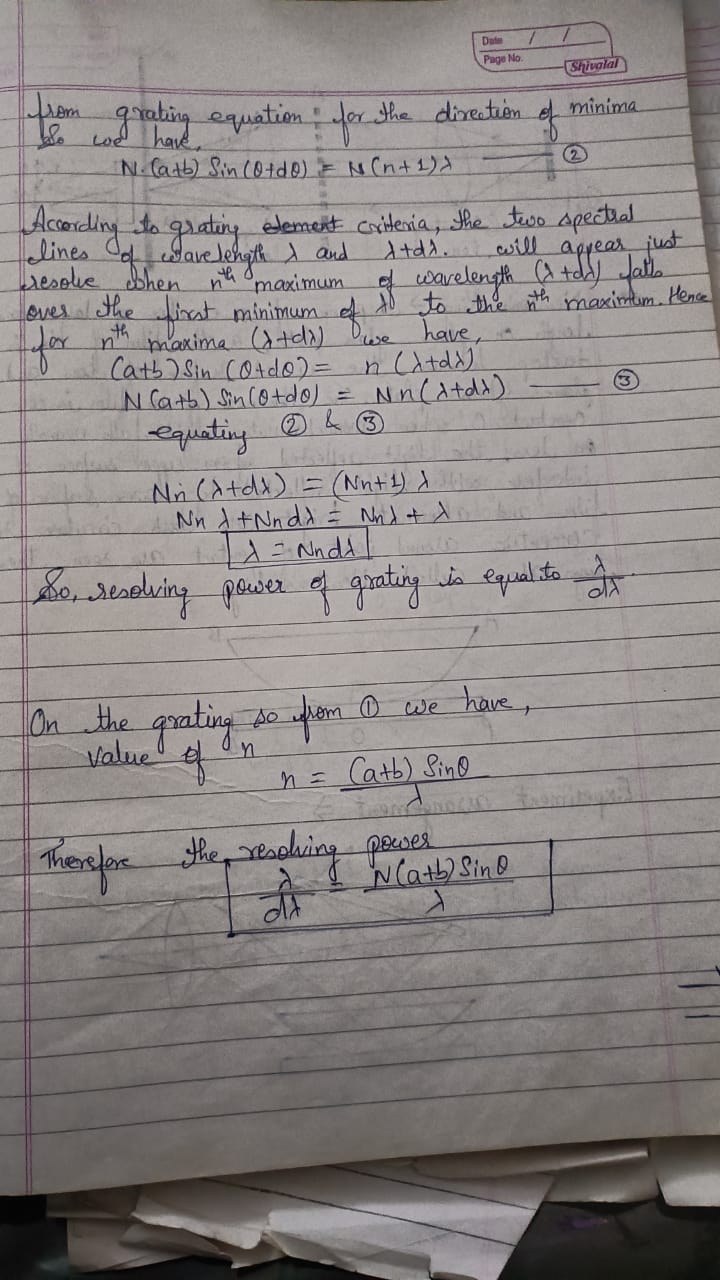 Date / /
Page No.
Shivalal
from grating equation : for the direction of minima
So we have,
N.(a+b) Sin(θ+dθ) = N(n+1)λ —— ②
According to grating element criteria, the two spectral
lines of wavelength λ and λ+dλ. will appear just
resolve when nth maximum of wavelength (λ+dλ) falls
over the first minimum of λ to the nth maximum. Hence
for nth maxima (λ+dλ) we have,
(a+b) Sin(θ+dθ) = n(λ+dλ)
N(a+b) Sin(θ+dθ) = Nn(λ+dλ) —— ③
equating ② & ③
Nn(λ+dλ) = (Nn+1)λ
Nnλ + Nndλ = Nnλ + λ
λ = Nndλ
So, resolving power of grating is equal to λ/dλ
On the grating so from ① we have,
value of n
n = (a+b) Sinθ/λ
Therefore the resolving power
λ/dλ = N(a+b) Sinθ/λ